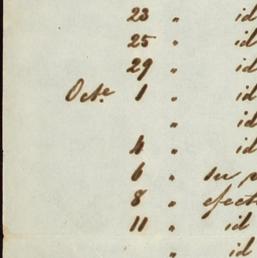 23 " id
25 " id
29 " id
Oct.e 1 " id
" id
4 " id
6 " su p
8 " efect
11 " id
" id